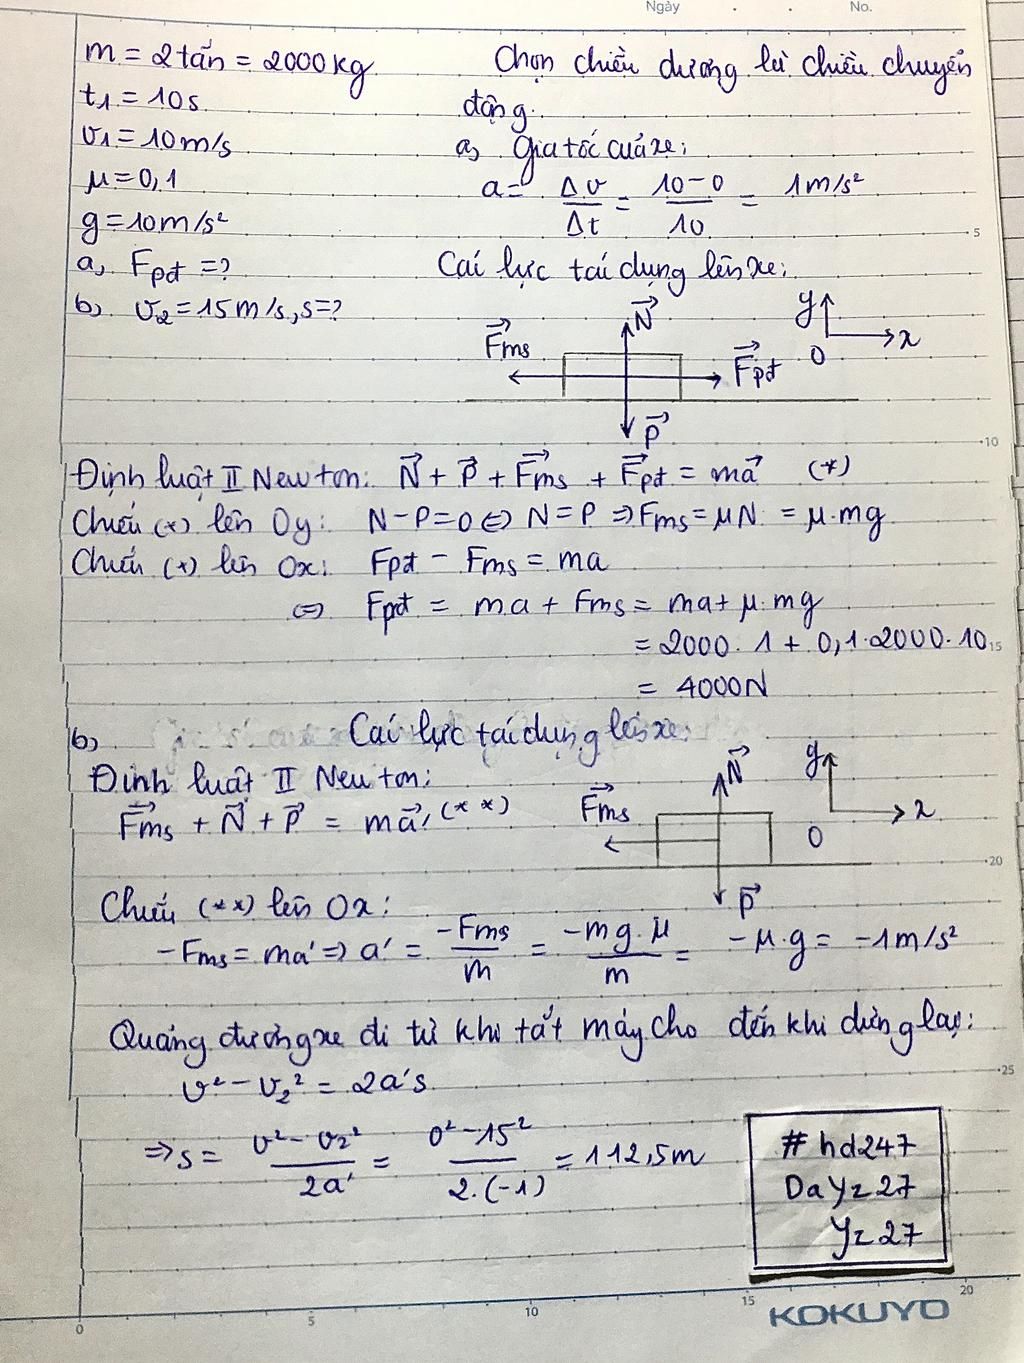 Ngày . . No.
m = 2 tấn = 2000kg
t₁ = 10s
v₁ = 10m/s
μ = 0,1
g = 10m/s²
a, Fpđ = ?
b, v₂ = 15m/s, s = ?
Chọn chiều dương là chiều chuyển
động.
a, Gia tốc của xe:
a = Δv/Δt = (10-0)/10 = 1m/s²
Các lực tác dụng lên xe:
N→ y
F→ms O x
F→pđ
P→
Định luật II Newton: N→ + P→ + F→ms + F→pđ = ma→ (*)
Chiếu (*) lên Oy: N-P=0 ⇔ N=P ⇒ Fms = μN = μ.mg
Chiếu (*) lên Ox: Fpđ - Fms = ma
⇔ Fpđ = ma + Fms = ma + μ.mg
= 2000.1 + 0,1.2000.10
= 4000N
b, Các lực tác dụng lên xe:
Định luật II Newton:
F→ms + N→ + P→ = ma→' (**)
N→ y
F→ms O x
P→
Chiếu (**) lên Ox:
-Fms = ma' ⇒ a' = -Fms/m = -mg.μ/m = -μ.g = -1m/s²
Quãng đường xe đi từ khi tắt máy cho đến khi dừng lại:
v² - v₂² = 2a's
⇒ s = (v² - v₂²)/2a' = (0² - 15²)/2.(-1) = 112,5m
#hd247
DaYz27
Yz27
5
10
15
20
25
0 5 10 15 20
KOKUYO